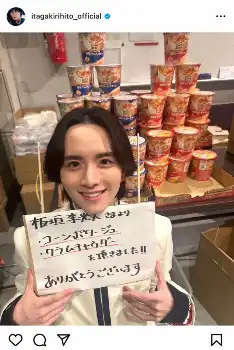 itagakirihito_official
板垣李光人さまより
・コーンポタージュ
・クラムチャウダー
を頂きました!!
ありがとうございます